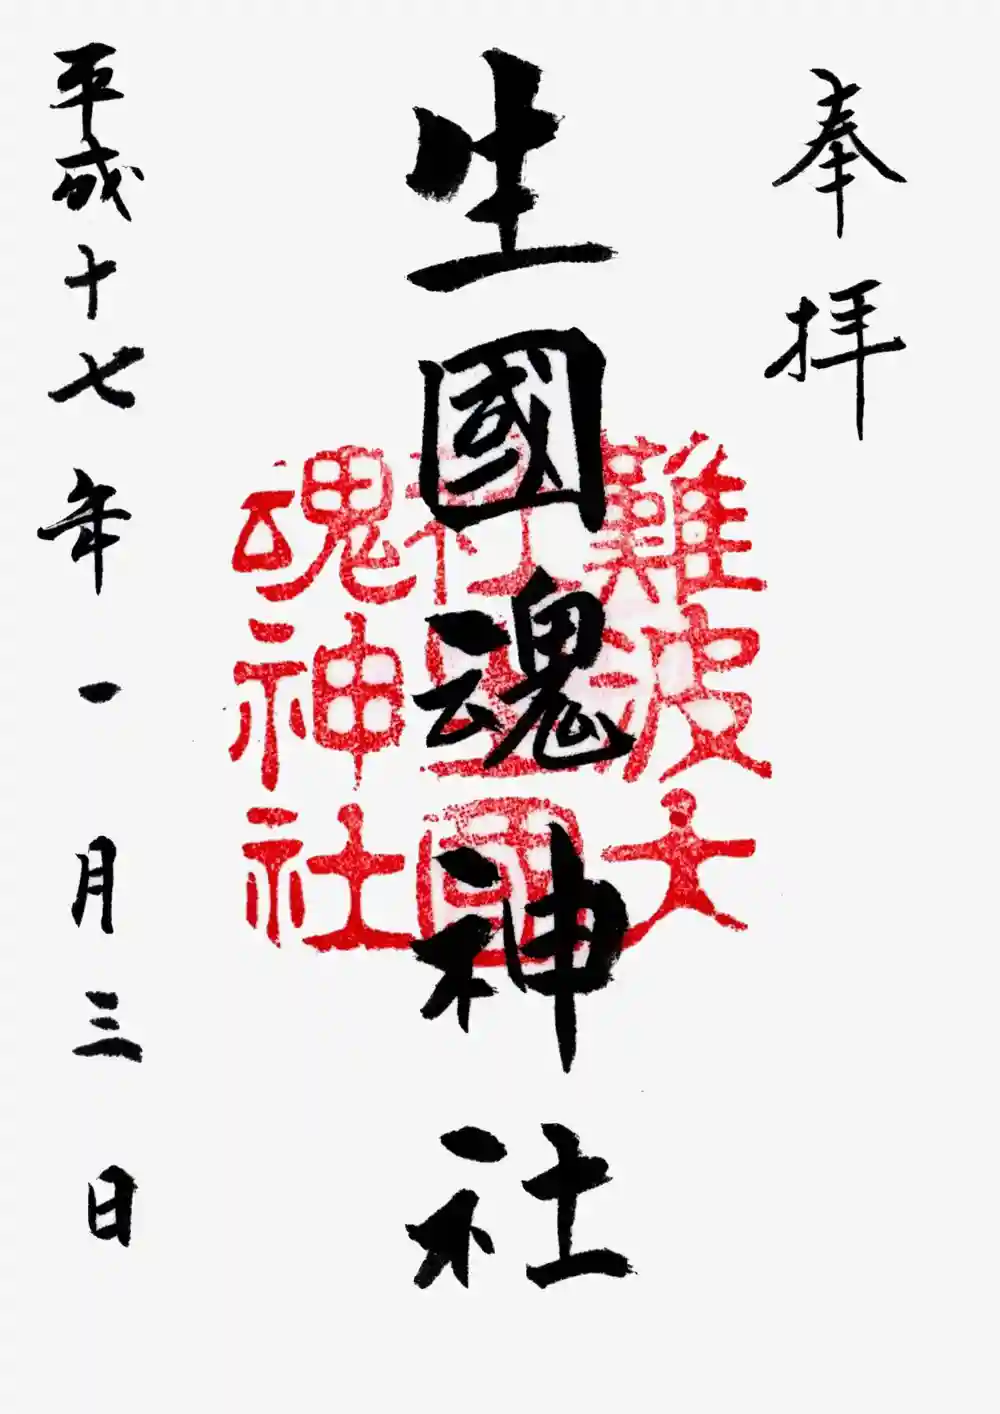 奉拝
生國魂神社
難波大
社生國
魂神社
平成十七年一月三日